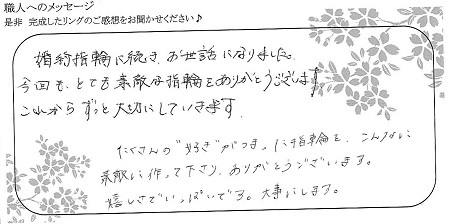 職人へのメッセージ
是非 完成したリングのご感想をお聞かせください♪
婚約指輪に続き、お世話になりました。
今回も、とても素敵な指輪をありがとうございます
これから ずっと大切にしていきます
たくさんの がつまった指輪を、こんなに
素敵に作って下さり、ありがとうございます。
嬉しさでいっぱいです。大事にします。